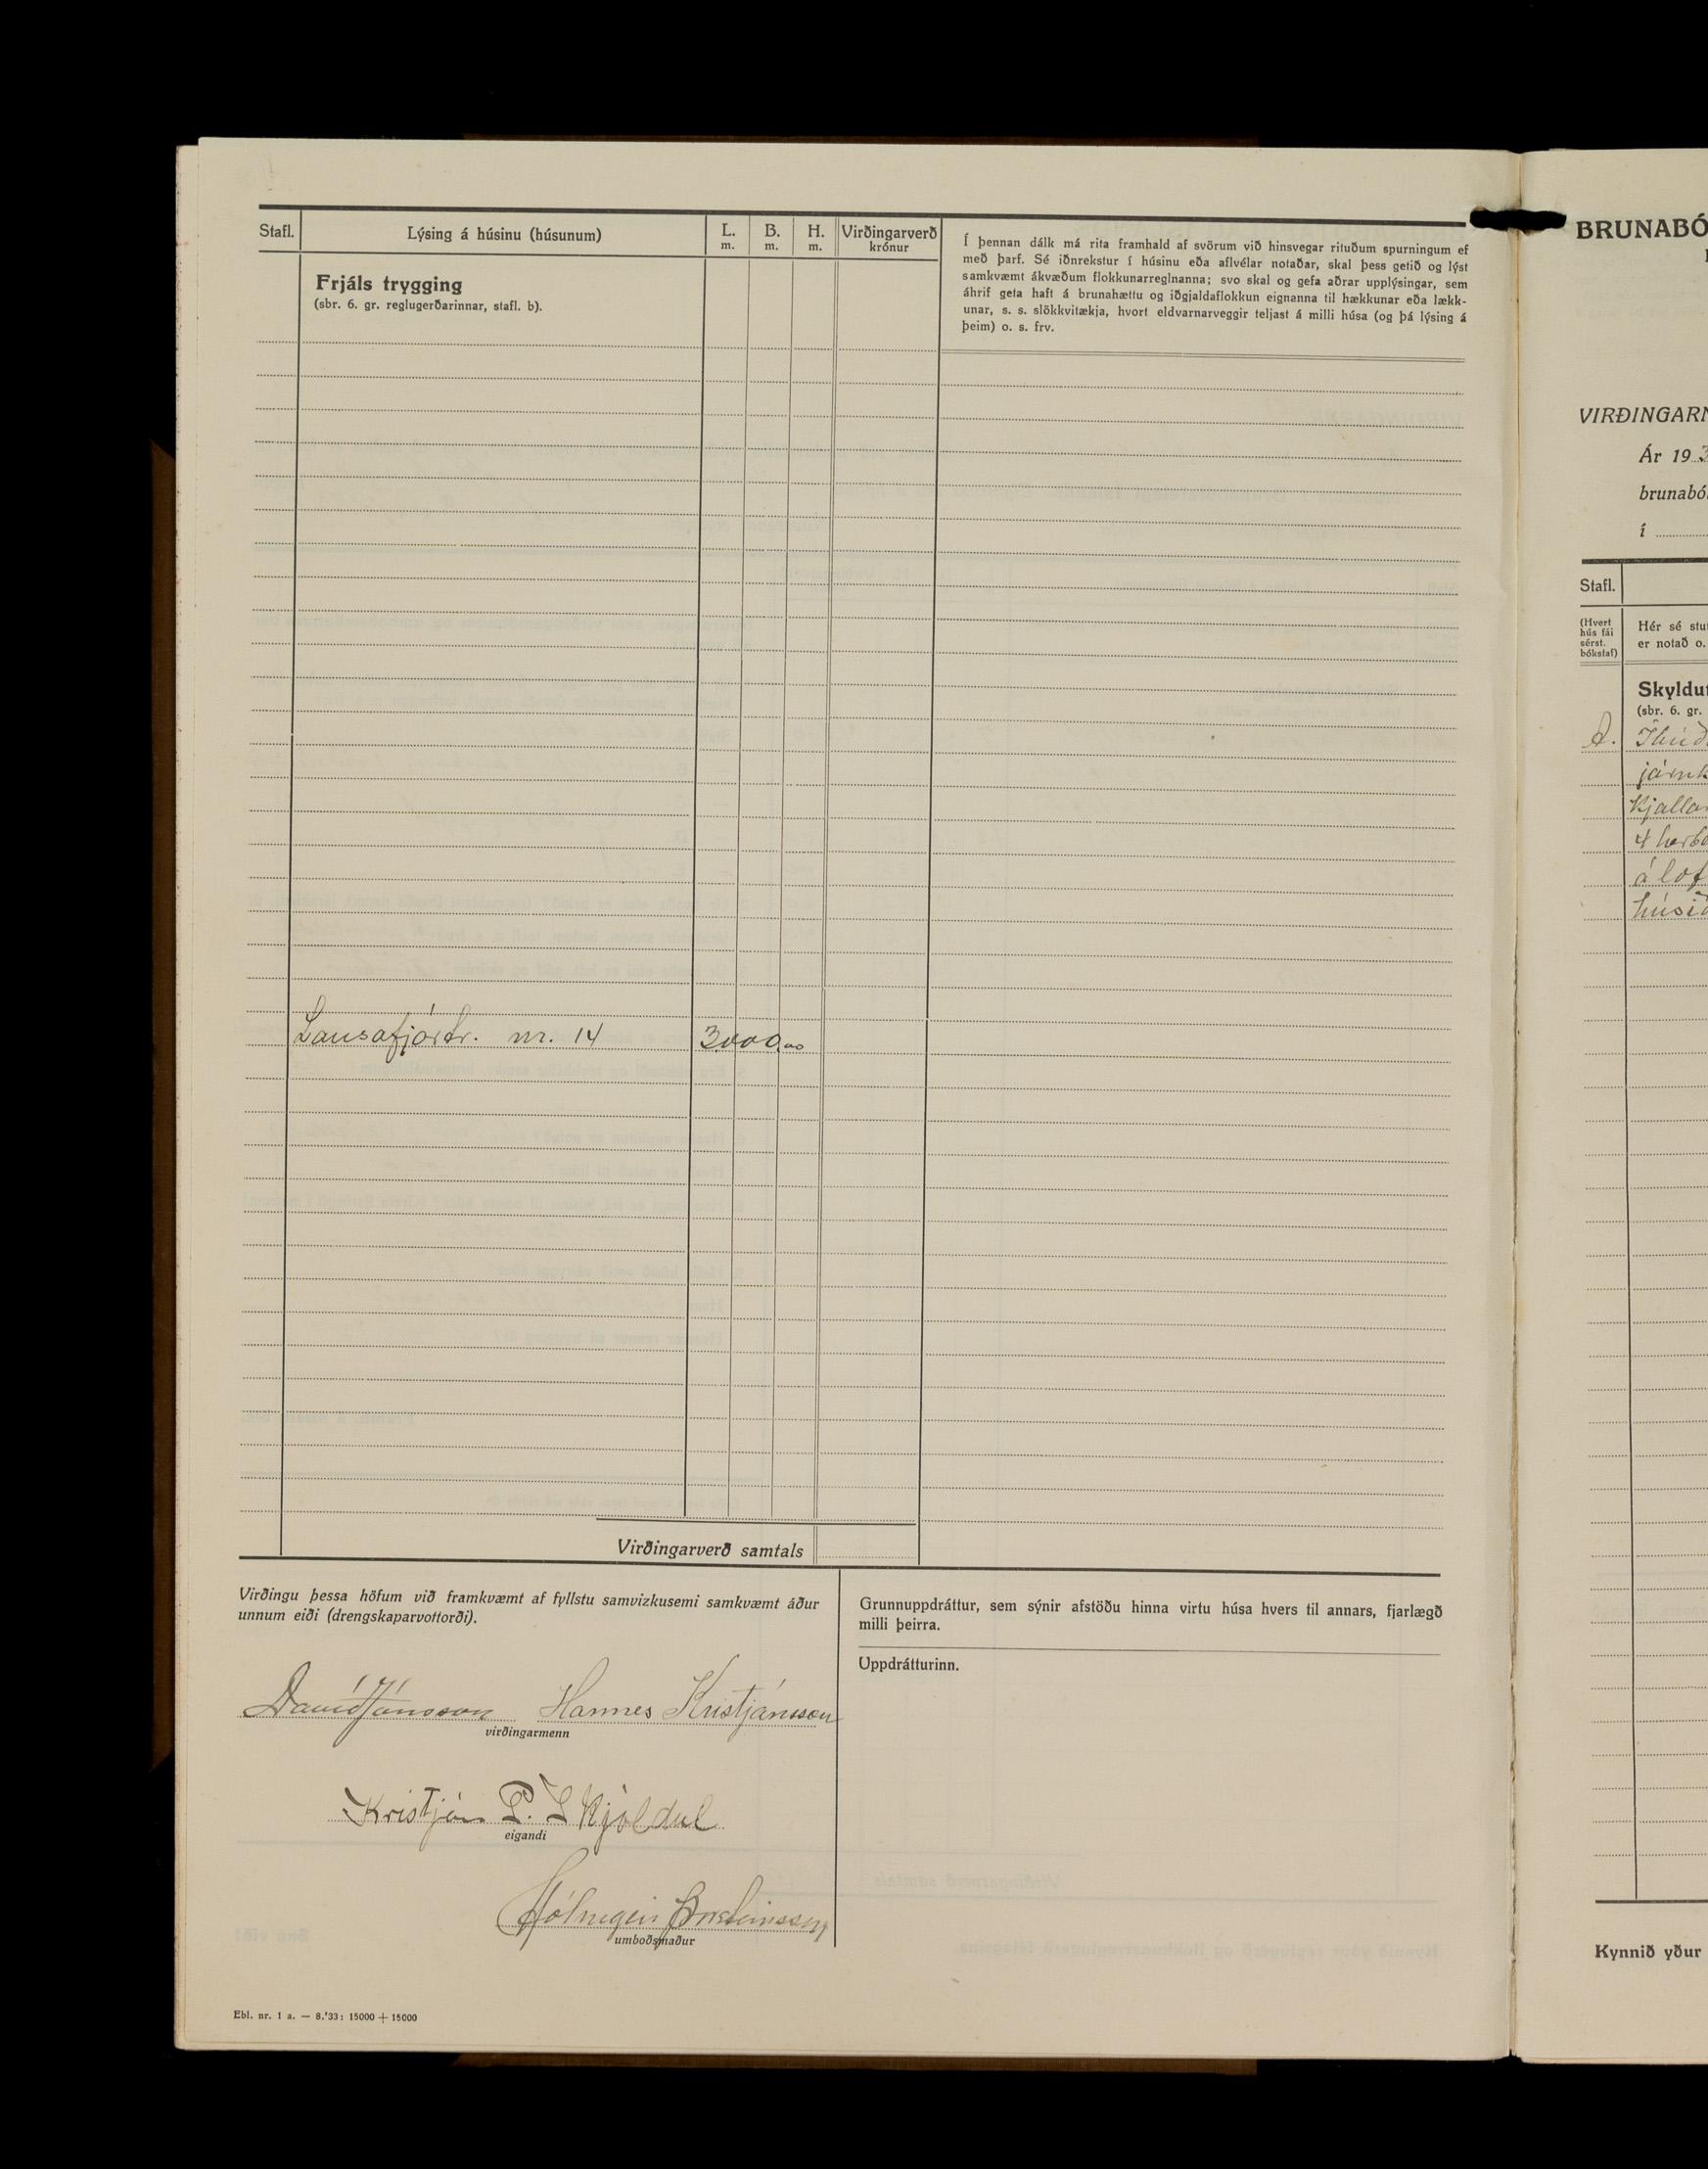 Stafl. Lýsing á húsinu (húsunum) L. m. B. m. H. m. Virðingarverð krónur
Í þennan dálk má rita framhald af svörum við hinsvegar rituðum spurningum ef
með þarf. Sé iðnrekstur í húsinu eða aflvélar notaðar, skal þess getið og lýst
samkvæmt ákvæðum flokkunarreglnanna; svo skal og gefa aðrar upplýsingar, sem
áhrif geta haft á brunahættu og iðgjaldaflokkun eignanna til hækkunar eða lækk-
unar, s. s. slökkvitækja, hvort eldvarnarveggir teljast á milli húsa (og þá lýsing á
þeim) o. s. frv.
Frjáls trygging
(sbr. 6. gr. reglugerðarinnar, stafl. b).
Lausafjártr. nr. 14 3000,00
Virðingarverð samtals
Virðingu þessa höfum við framkvæmt af fyllstu samvizkusemi samkvæmt áður
unnum eiði (drengskaparvottorði).
Davíð Jónsson Hannes Kristjánsson
virðingarmenn
Kristján P. Skjóldal
eigandi
Hólmgeir Þorsteinsson
umboðsmaður
Grunnuppdráttur, sem sýnir afstöðu hinna virtu húsa hvers til annars, fjarlægð
milli þeirra.
Uppdrátturinn.
Ebl. nr. 1 a. — 8.'33: 15000 + 15000
BRUNABÓ
VIRÐINGARN
Ár 193
brunabó
í
Stafl.
(Hvert
hús fái
sérst.
bókstaf)
Hér sé stu
er notað o.
Skyldu
(sbr. 6. gr.
A. Íbúð
járnk
Kjallar
4 herb
á lof
húsið
Kynnið yður